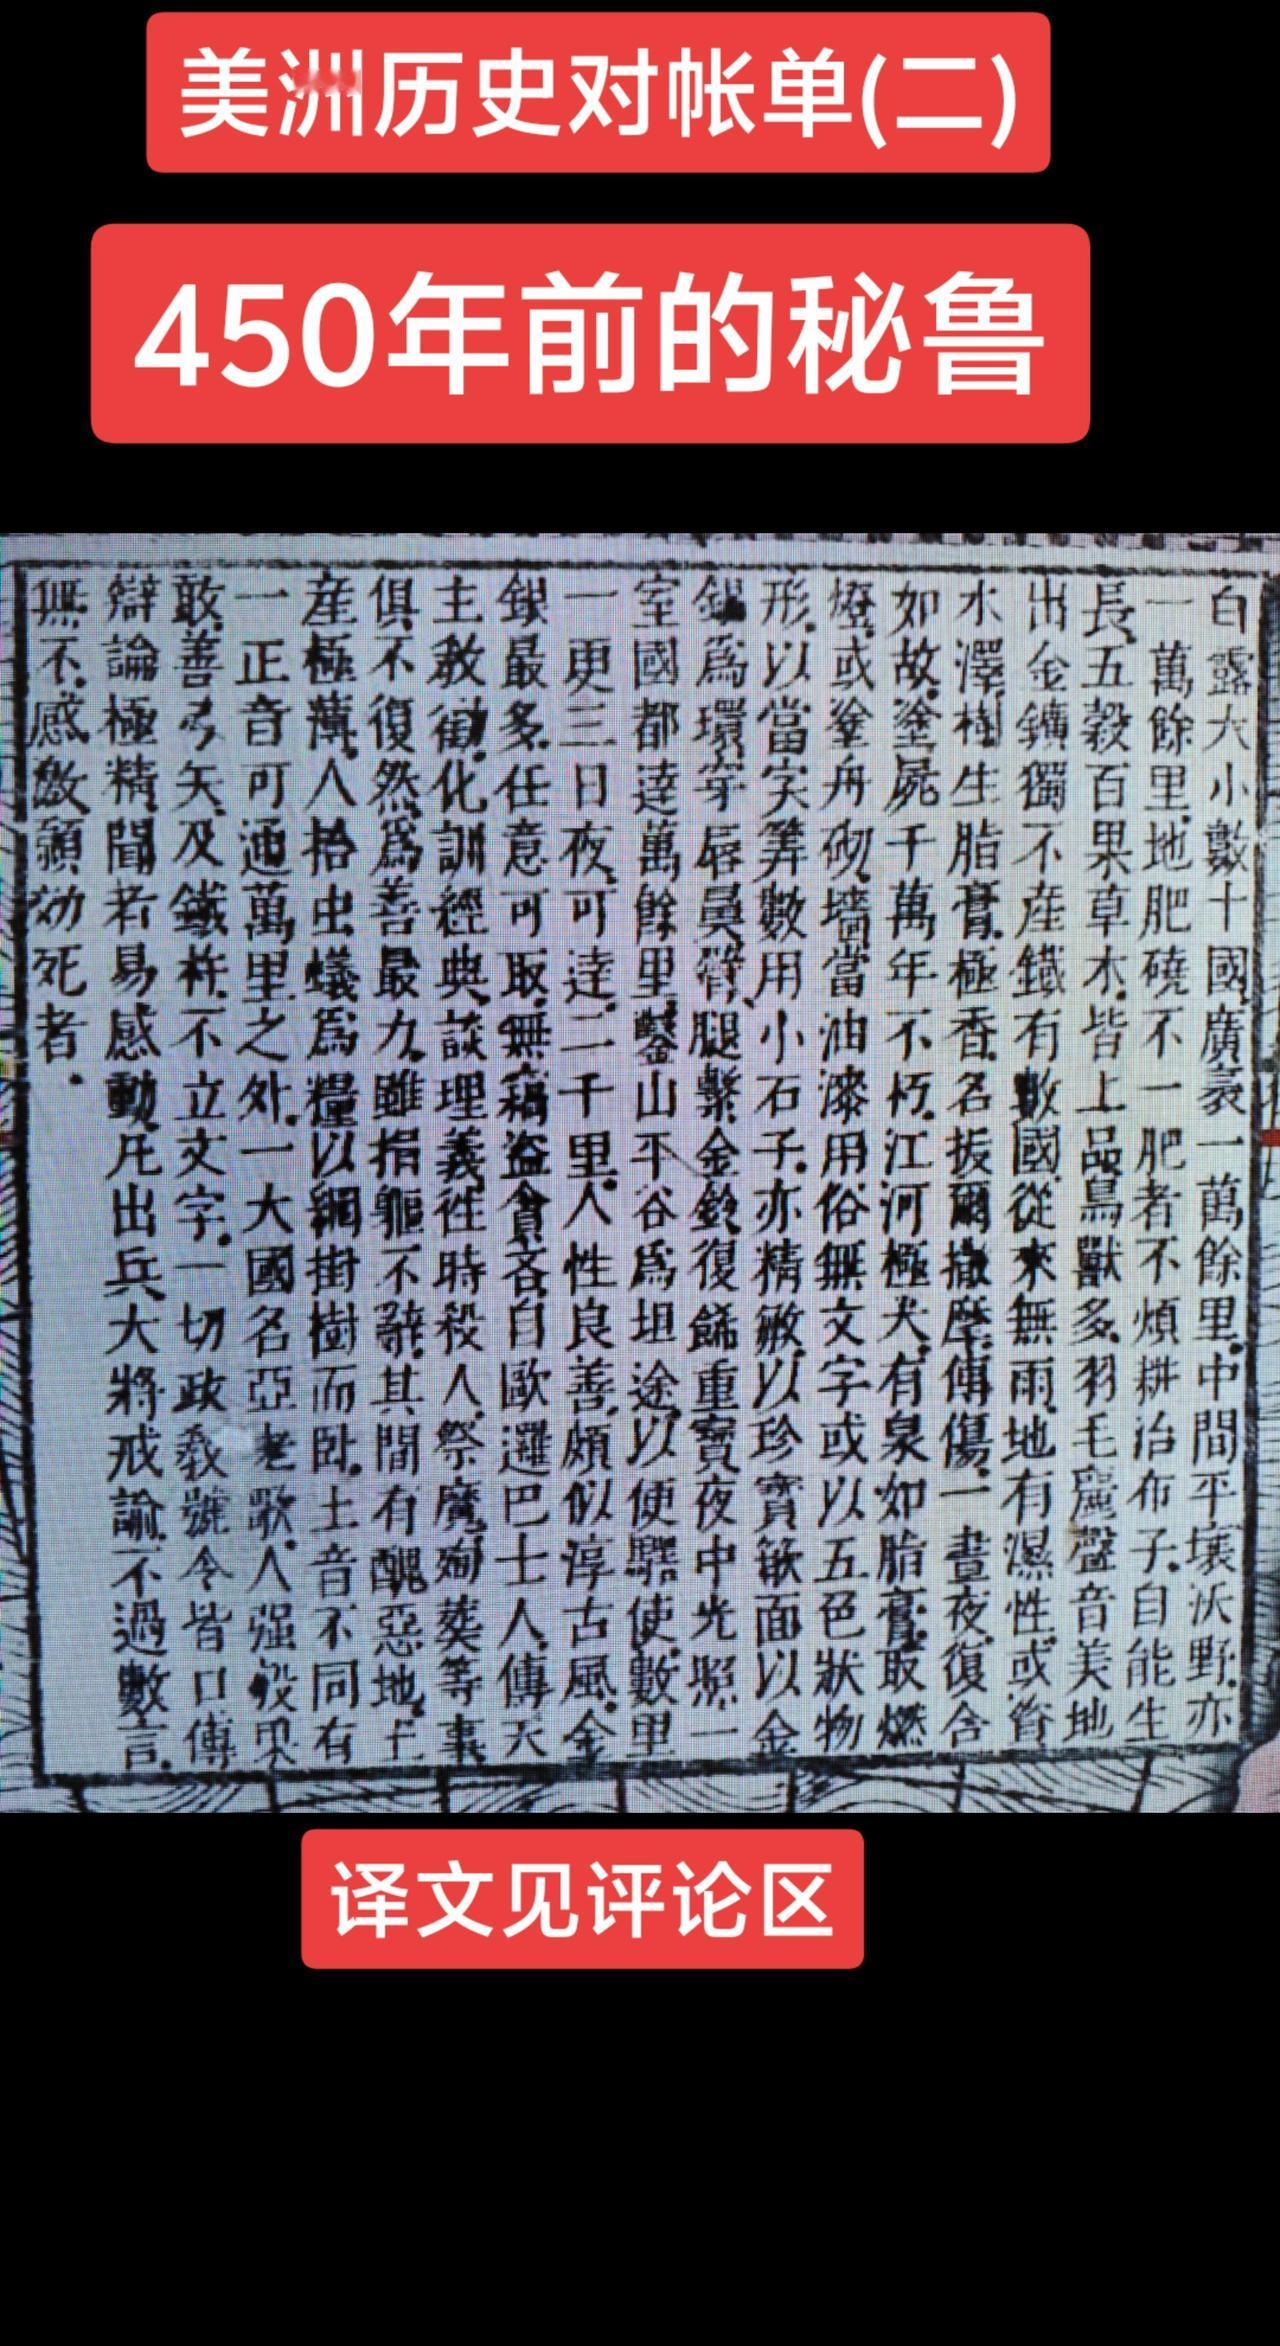 美洲历史对帐单(二)
450年前的秘鲁
白露大小數十國廣袤一萬餘里.中間平壤沃野.亦
一萬餘里.地肥磽不一肥者不煩耕治布子.自能生
長.五穀百果草木.皆上品鳥獸多.羽毛麗聲音美地
出金鑛獨不産鐵有數國從來無雨.地有濕性或資
水澤.樹生脂膏.極香.名拔爾撒摩.傅傷.一晝夜.復合
如故.塗屍千萬年不朽.江河極大.有泉如脂膏.取燃
燈.或塗舟砌墻當油漆用俗無文字或以五色狀物
形.以當字筭數用小石子.亦精敏.以珍寳飾面以金
銀爲環穿唇鼻.臂腿繫金鈴復飾重寳夜中光照一
室國都達萬餘里.鑿山平谷爲坦途.以便驛使.數里
一更三日夜.可達.二千里.人性良善.頗似淳古風.金
銀最多.任意可取.無竊盗貪吝自歐邏巴士人.傳天
主教.勸化訓經典.談理義.徃時殺人祭魔.殉葵等事
俱不復然.爲善最力.雖捐軀不辭.其間有醜惡地.土
産極薄.人拾虫蟻爲糧以網掛樹而卧.土音不同有
一正音可通萬里之外.一大國名亞老歌.人强毅果
敢.善弓矢.及鐵杵.不立文字.一切政敎號令皆口傳
辯論極精.聞者易感動.凡出兵大將戒諭.不過數言.
無不.感激.願効死者.
译文见评论区